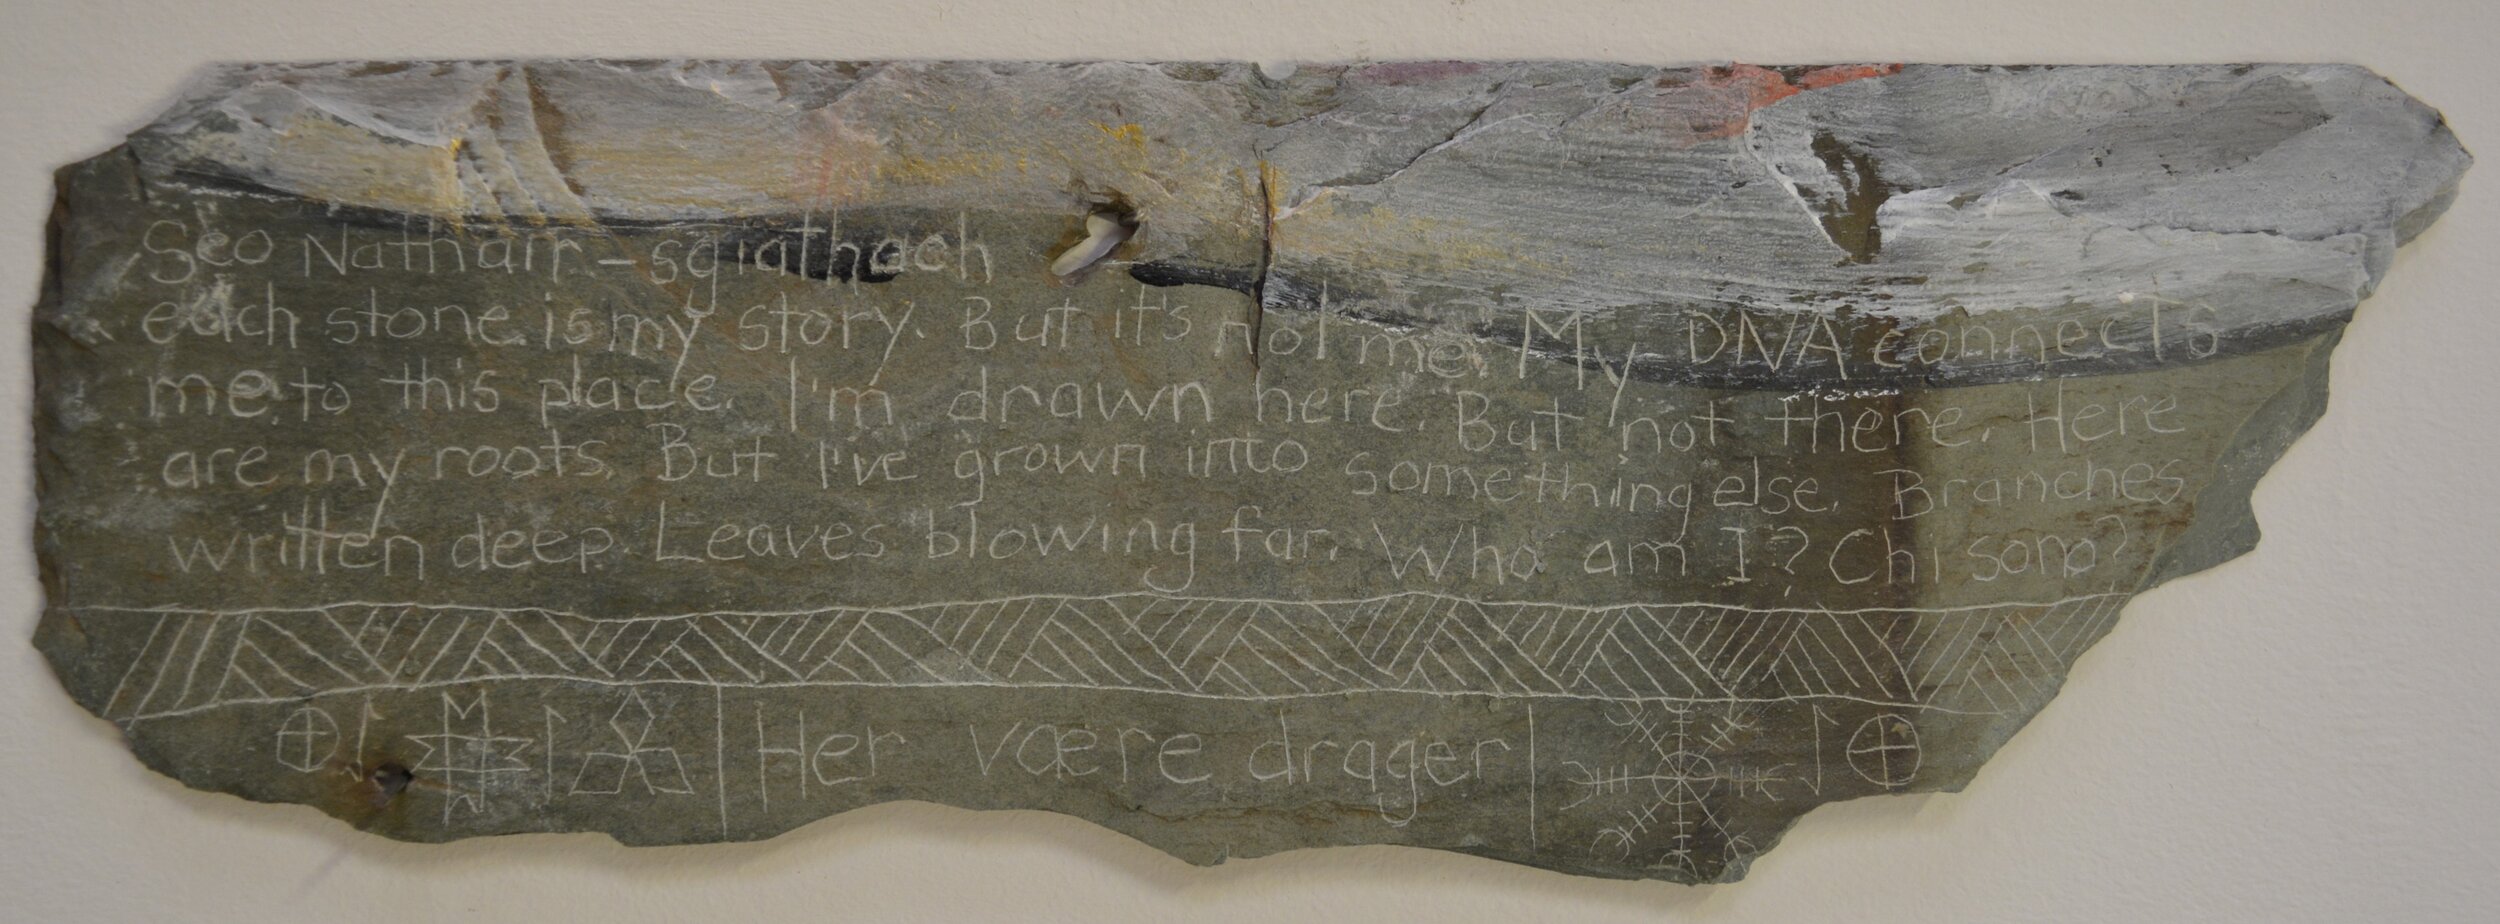 Seo Nathair-sgiathach
each stone is my story. But it's not me. My DNA connects
me to this place. I'm drawn here. But not there. Here
are my roots. But I've grown into something else. Branches
written deep. Leaves blowing far. Who am I? Chi sono?
Her være drager